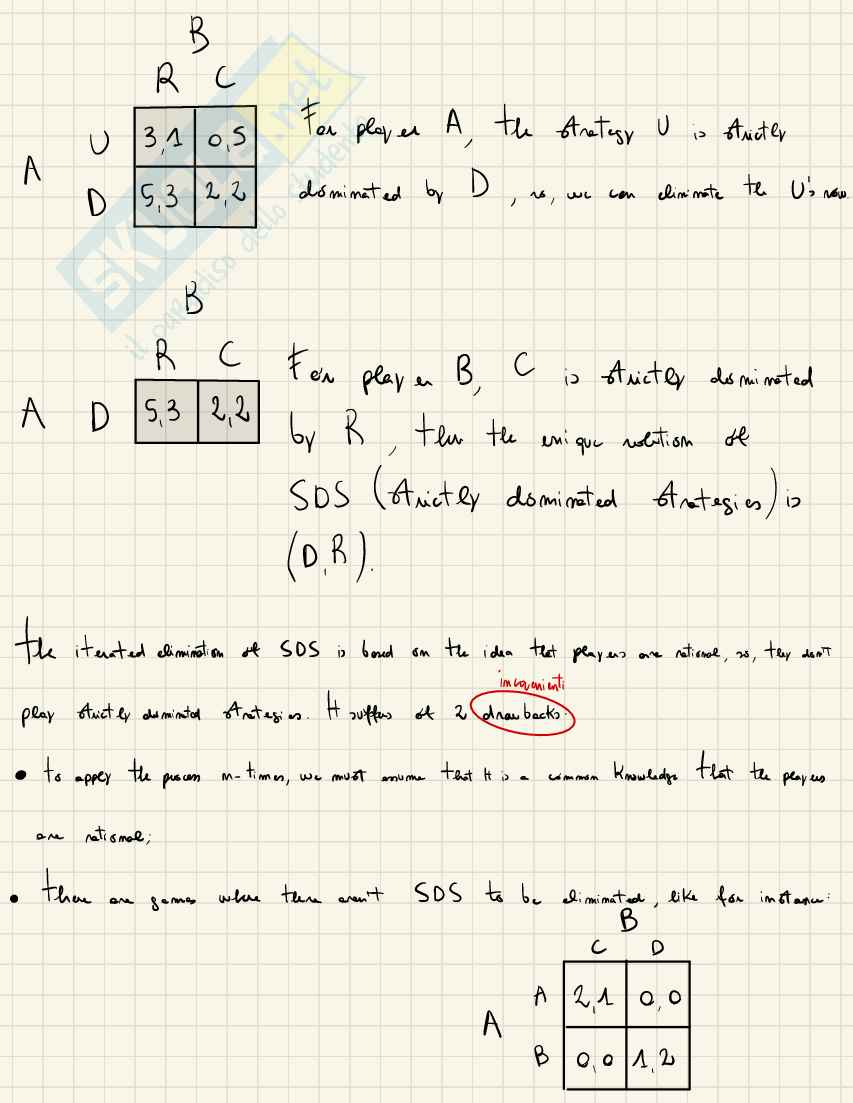 B
R C
U 3,1 0,5
A
D 5,3 2,2
For player A, the strategy U is strictly
dominated by D, so, we can eliminate the U's row.
SKUOLA.net
il paradiso dello studente
B
R C
A D 5,3 2,2
For player B, C is strictly dominated
by R, then the unique solution of
SDS (strictly dominated strategies) is
(D,R).
The iterated elimination of SDS is based on the idea that players are rational, so, they don't
inconvenienti
play strictly dominated strategies. It suffers of 2 drawbacks:
• to apply the process n-times, we must assume that it is a common knowledge that the players
are rational;
• there are games where there aren't SDS to be eliminated, like for instance:
B
C D
A 2,1 0,0
A
B 0,0 1,2